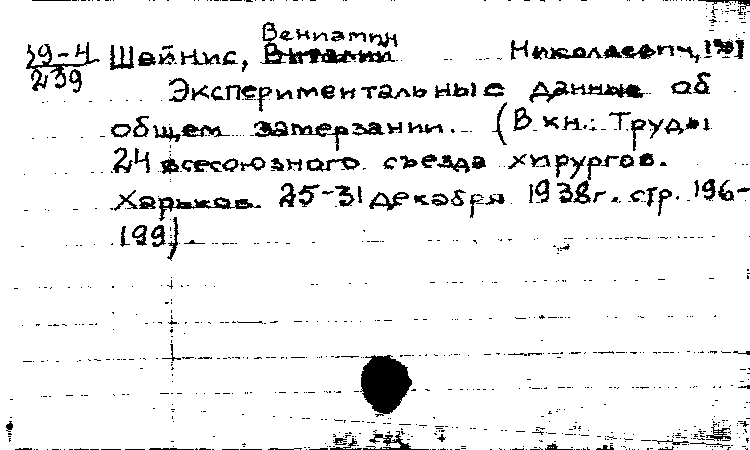 Вениамин
39-4 Шейнис, Виталий Николаевич,
239
Экспериментальные данные об
общем замерзании. (В кн.: Труды
24 всесоюзного съезда хирургов.
Харьков. 25-31 декабря 1938г. стр. 196-
199).